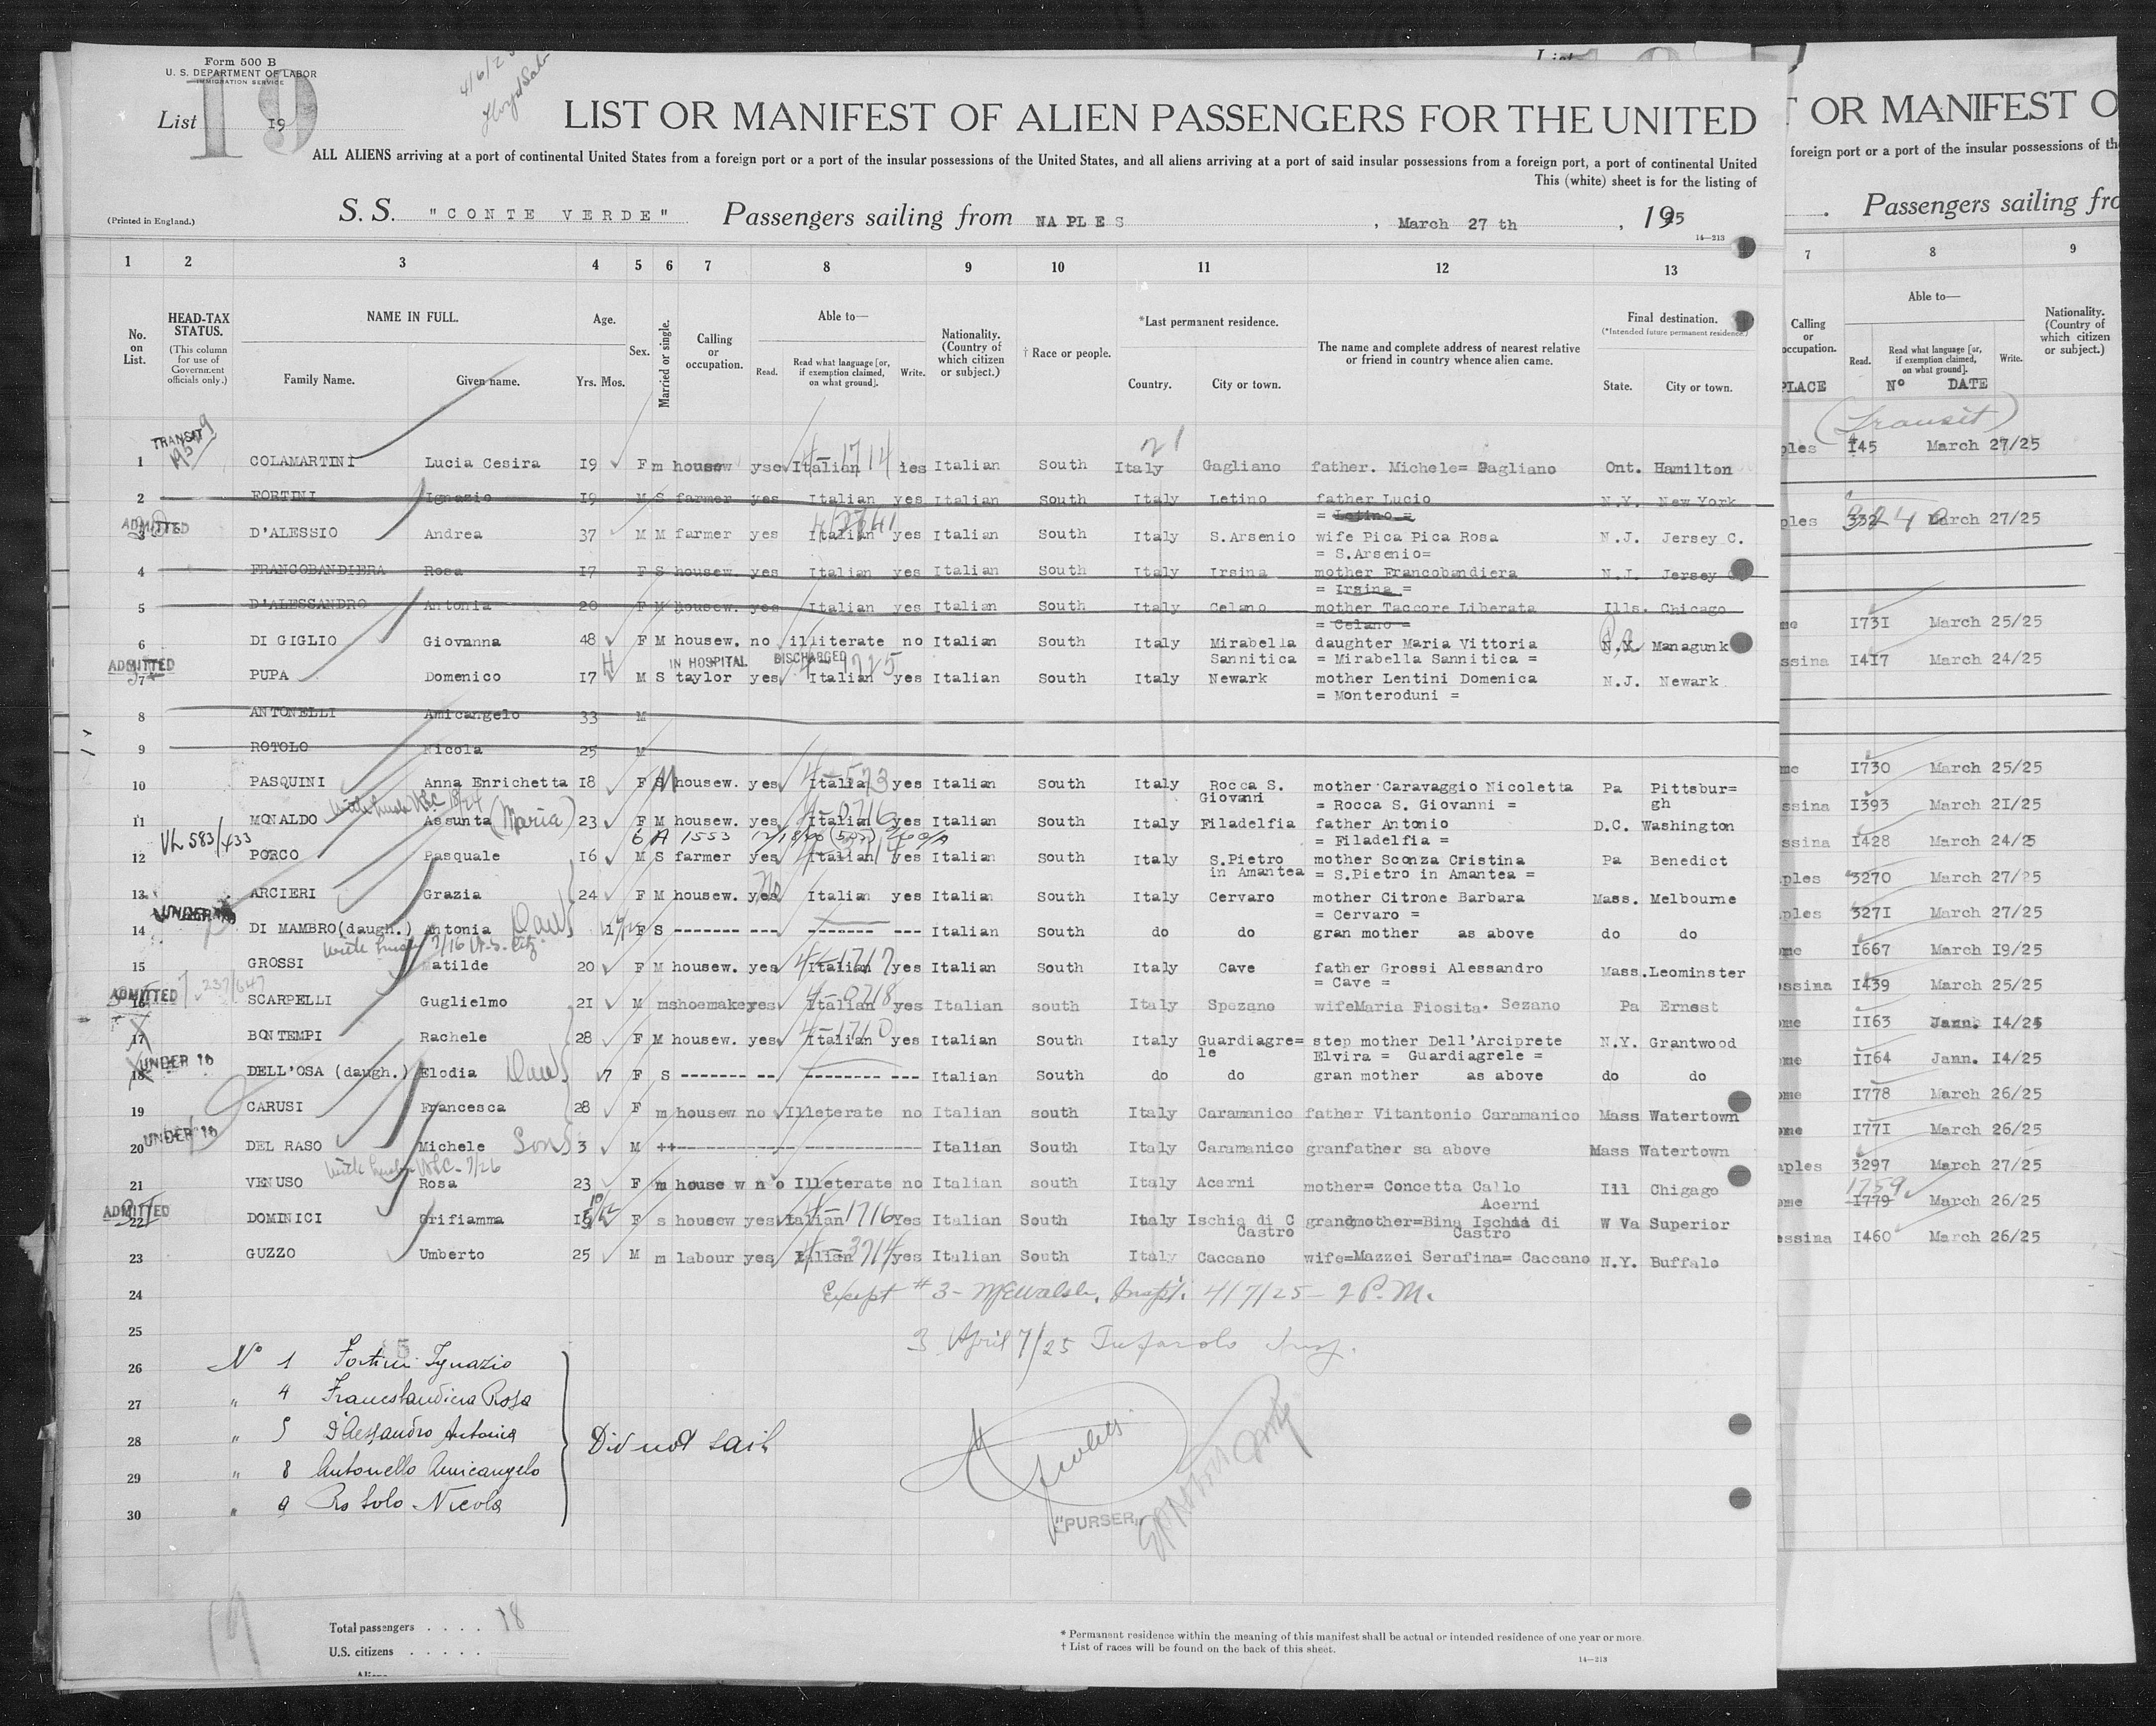 Form 500 B
U. S. DEPARTMENT OF LABOR
IMMIGRATION SERVICE
List 19
19
4/6/25
LIST OR MANIFEST OF ALIEN PASSENGERS FOR THE UNITED
ALL ALIENS arriving at a port of continental United States from a foreign port or a port of the insular possessions of the United States, and all aliens arriving at a port of said insular possessions from a foreign port, a port of continental United
This (white) sheet is for the listing of
(Printed in England.)
S. S. "CONTE VERDE" Passengers sailing from NAPLES, March 27 th, 1925
14—213
1 2 3 4 5 6 7 8 9 10 11 12 13
No. on List.
HEAD-TAX STATUS.
(This column for use of Government officials only.)
NAME IN FULL.
Family Name. Given name.
Age.
Yrs. Mos.
Sex.
Married or single.
Calling or occupation.
Able to—
Read. Read what language [or, if exemption claimed, on what ground]. Write.
Nationality. (Country of which citizen or subject.)
† Race or people.
*Last permanent residence.
Country. City or town.
The name and complete address of nearest relative or friend in country whence alien came.
Final destination.
(*Intended future permanent residence.)
State. City or town.
TRANSIT
4-1714 21
1 COLAMARTINI Lucia Cesira 19 F m housew yse Italian ies Italian South Italy Gagliano father. Michele= Gagliano Ont. Hamilton
2 FORTINI Ignazio 19 M S farmer yes Italian yes Italian South Italy Letino father Lucio N.Y. New York
= Letino =
ADMITTED
3 D'ALESSIO Andrea 37 M M farmer yes Italian yes Italian South Italy S.Arsenio wife Pica Pica Rosa N.J. Jersey C.
= S.Arsenio=
4 FRANCOBANDIERA Rosa 17 F S housew. yes Italian yes Italian South Italy Irsina mother Francobandiera N.J. Jersey
= Irsina =
5 D'ALESSANDRO Antonia 20 F M housew. yes Italian yes Italian South Italy Celano mother Taccore Liberata Ills. Chicago
= Celano =
6 DI GIGLIO Giovanna 48 F M housew. no illiterate no Italian South Italy Mirabella Sannitica daughter Maria Vittoria N.Y. Managunk
= Mirabella Sannitica =
ADMITTED IN HOSPITAL DISCHARGED
7 PUPA Domenico 17 M S taylor yes Italian yes Italian South Italy Newark mother Lentini Domenica N.J. Newark
= Monteroduni =
8 ANTONELLI Amicangelo 33 M
9 ROTOLO Nicola 25 M
10 PASQUINI Anna Enrichetta 18 F S housew. yes Italian yes Italian South Italy Rocca S. Giovanni mother Caravaggio Nicoletta Pa Pittsbur=gh
= Rocca S. Giovanni =
11 MONALDO Assunta (Maria) 23 F M housew. yes Italian yes Italian South Italy Filadelfia father Antonio D.C. Washington
= Filadelfia =
VL 583/433 6 A 1553
12 PORCO Pasquale 16 M S farmer yes Italian yes Italian South Italy S.Pietro in Amantea mother Sconza Cristina Pa Benedict
= S.Pietro in Amantea =
13 ARCIERI Grazia 24 F M housew. yes No Italian yes Italian South Italy Cervaro mother Citrone Barbara Mass. Melbourne
= Cervaro =
UNDER 16
14 DI MAMBRO(daugh.) Antonia Dau F S ------- --- ------- --- Italian South do do gran mother as above do do
15 GROSSI Matilde 20 F M housew. yes 4-1717 Italian yes Italian South Italy Cave father Grossi Alessandro Mass.Leominster
= Cave =
ADMITTED 237/647
16 SCARPELLI Guglielmo 21 M m shoemaker yes 4-0718 Italian yes Italian south Italy Spezano wifeMaria Fiosita. Sezano Pa Ernest
17 BONTEMPI Rachele 28 F M housew. yes 4-1710 Italian yes Italian South Italy Guardiagre=le step mother Dell'Arciprete N.Y. Grantwood
Elvira = Guardiagrele =
UNDER 16
18 DELL'OSA (daugh.) Elodia Dau 7 F S ------- -- -------- --- Italian South do do gran mother as above do do
19 CARUSI Francesca 28 F m housew no Illeterate no Italian south Italy Caramanico father Vitantonio Caramanico Mass Watertown
UNDER 16
20 DEL RASO Michele Son 3 M ++------------------------ Italian South Italy Caramanico granfather sa above Mass Watertown
21 VENUSO Rosa 23 F m house w n o Illeterate no Italian south Italy Acerni mother= Concetta Callo Ill Chigago
Acerni
ADMITTED
22 DOMINICI Orifiamma F s housew yes Italian 4-1716 Yes Italian South Italy Ischia di C Castro grandmother=Bina Ischia di Castro W Va Superior
23 GUZZO Umberto 25 M m labour yes Italian 4-3714 yes Italian South Italy Caccano wife=Mazzei Serafina= Caccano N.Y. Buffalo
24 Except #3- McWalsh, Inspt. 4/7/25 - 2 P.M.
25 3 April 7/25
26 No 1 Fortini Ignazio
27 " 4 Francobandiera Rosa
28 " 5 D'Alessandro Antonia
29 " 8 Antonello Amicangelo
30 " 9 Rotolo Nicola
Did not sail
"PURSER"
19
Total passengers . . . . 18
U.S. citizens . . . . .
Aliens
* Permanent residence within the meaning of this manifest shall be actual or intended residence of one year or more.
† List of races will be found on the back of this sheet.
14—213
List
T OR MANIFEST O
foreign port or a port of the insular possessions of the
Passengers sailing fro
7 8 9
Calling occupation.
Able to—
Read. Read what language [or, if exemption claimed, on what ground]. Write.
Nationality. (Country of which citizen or subject.)
PLACE No DATE
(Transit)
ples 145 March 27/25
ples 332 March 27/25
me 1731 March 25/25
ssina 1417 March 24/25
me 1730 March 25/25
ssina 1393 March 21/25
ssina 1428 March 24/25
ples 3270 March 27/25
ples 3271 March 27/25
me 1667 March 19/25
ssina 1439 March 25/25
ome 1163 Jann. 14/25
me 1164 Jann. 14/25
ome 1778 March 26/25
ome 1771 March 26/25
aples 3297 March 27/25
1759
ome 1779 March 26/25
essina 1460 March 26/25